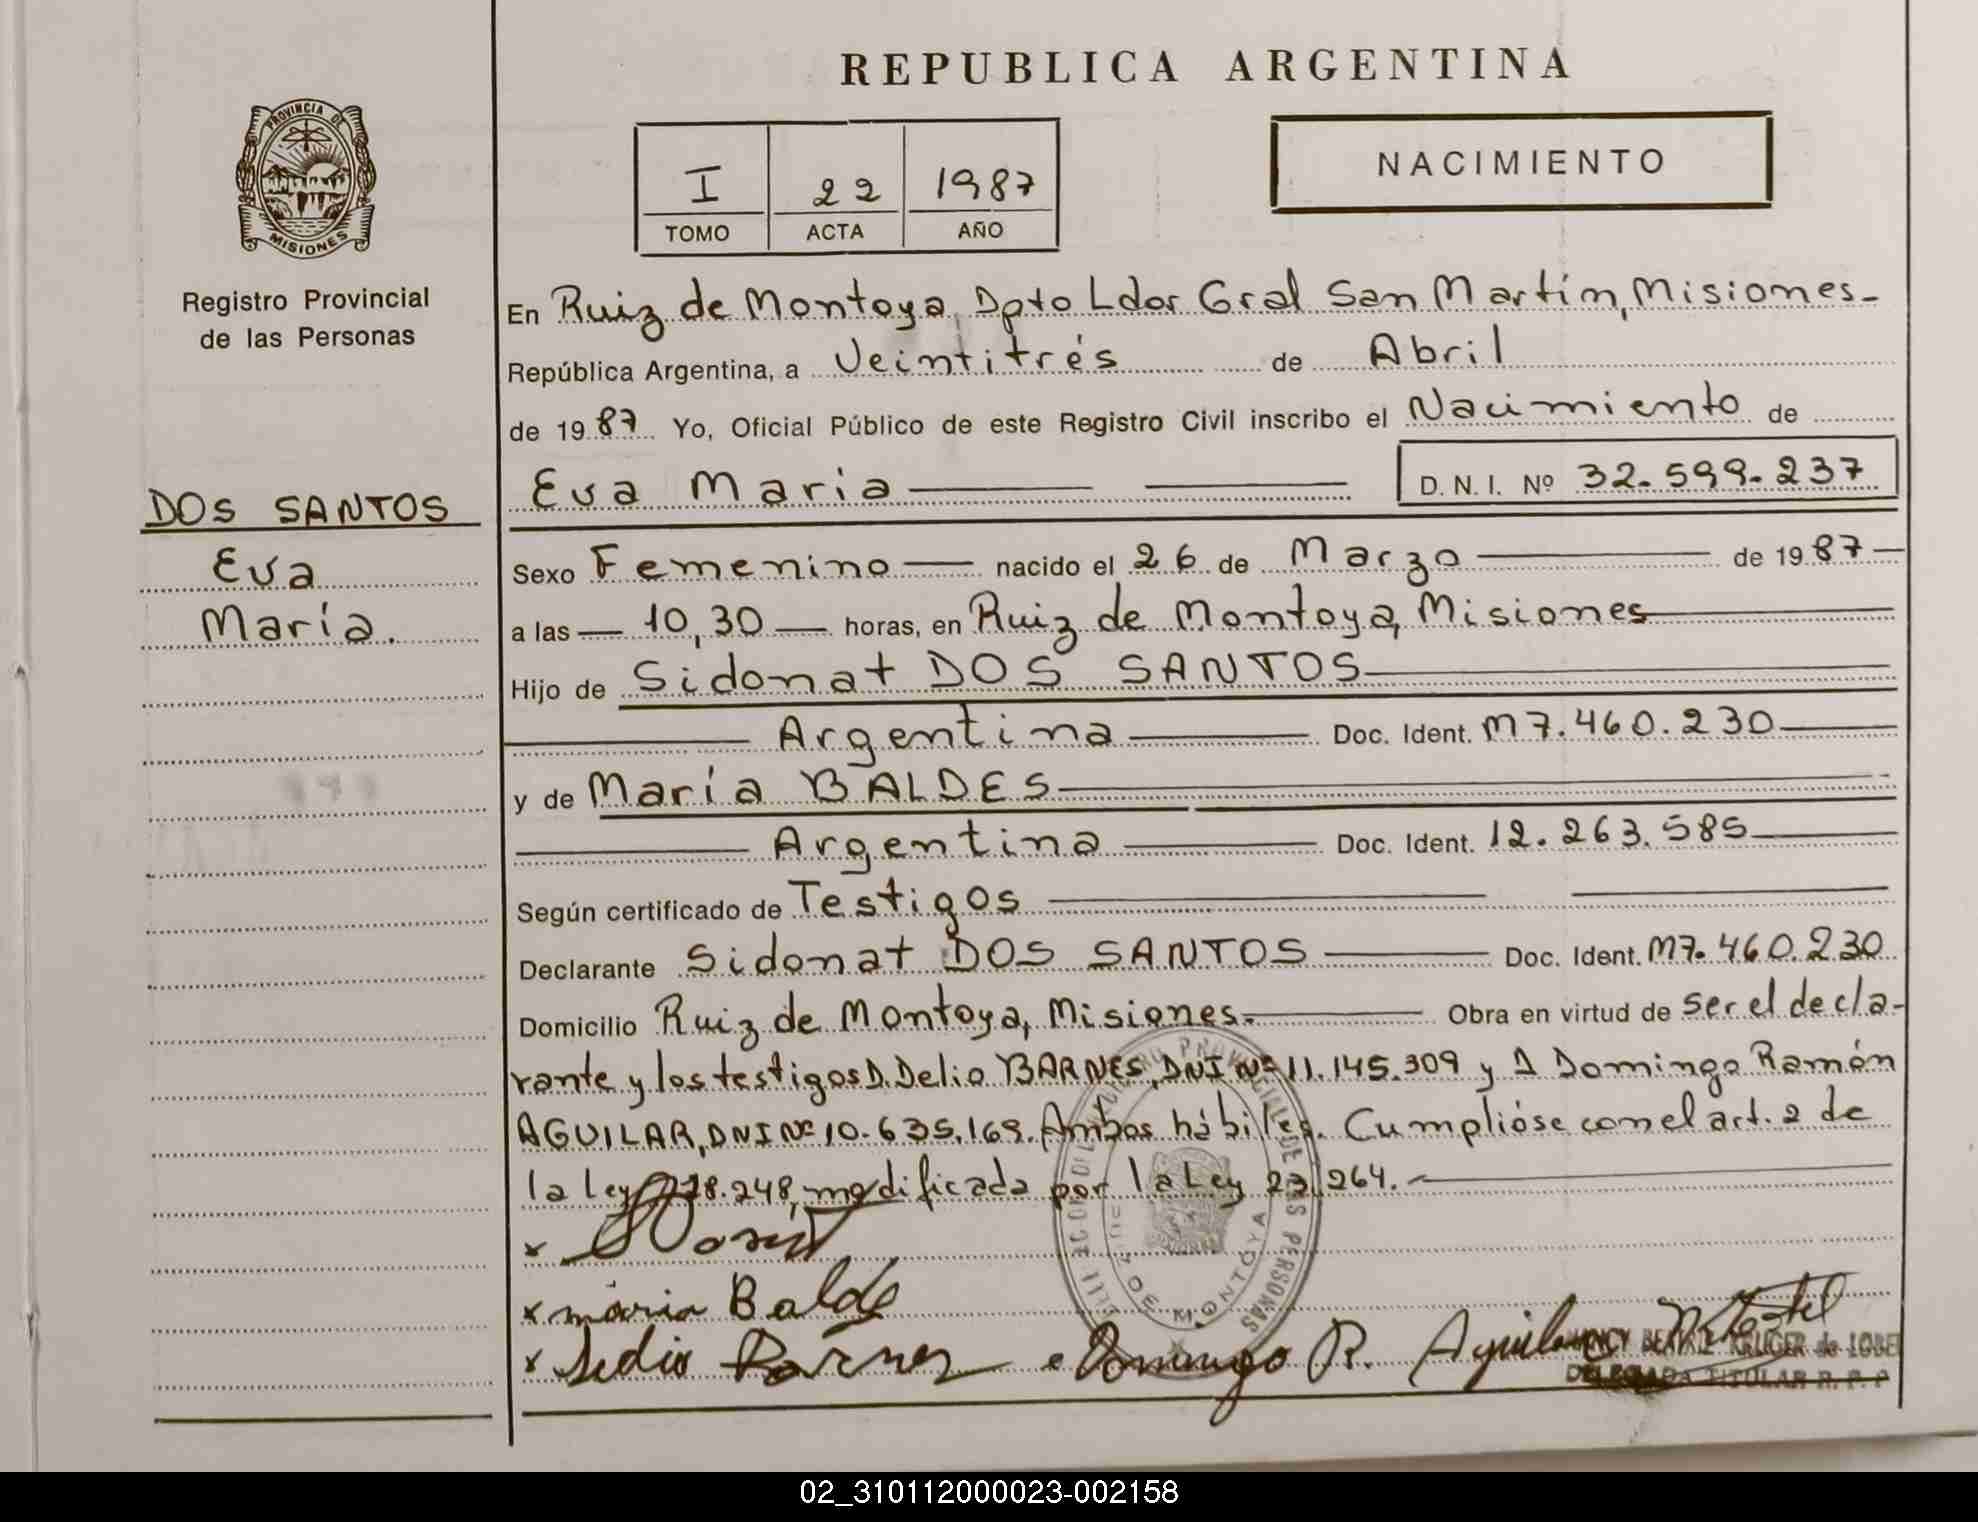 REPUBLICA ARGENTINA
PROVINCIA DE
MISIONES
Registro Provincial
de las Personas
I 22 1987
TOMO ACTA AÑO
NACIMIENTO
En Ruiz de Montoya, Dpto Ldor Gral San Martín, Misiones-
República Argentina, a Veintitrés de Abril
de 1987 Yo, Oficial Público de este Registro Civil inscribo el Nacimiento de
Eva Maria
D. N. I. Nº 32.599.237
DOS SANTOS
Eva
María.
Sexo Femenino nacido el 26 de Marzo de 1987
a las 10,30 horas, en Ruiz de Montoya, Misiones
Hijo de Sidonat DOS SANTOS
Argentina Doc. Ident. M7.460.230
y de María BALDES
Argentina Doc. Ident. 12.263.585
Según certificado de Testigos
Declarante Sidonat DOS SANTOS Doc. Ident. M7.460.230
Domicilio Ruiz de Montoya, Misiones.- Obra en virtud de ser el decla-
rante y los testigos D. Delio BARNES, DNI Nº 11.145.309 y D Domingo Ramón
AGUILAR, DNI Nº 10.635.169. Ambos hábiles. Cumplióse con el art. 2 de
la Ley 18.248, modificada por la Ley 23.264.
x
x maria Balde
x Delio Barnes Domingo R. Aguilar
NANCY BEATRIZ KRUGER de LOBEL
DELEGADA TITULAR R. P. P
DE LAS PERSONAS
DE MONTOYA
02_310112000023-002158